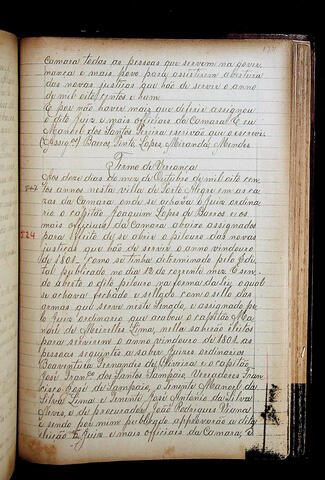 174
Camara todas as pessoas que servem na gover
nança e mais povo para assistirem abertura
das novas justiças que hão de servir o anno
de mil oito centos e hum.
E por não haver mais que deferir assignou
o dito juiz e mais officiaes da Camara. E eu
Manoel dos Santos Pereira escrivão que o escrevi
(Assig.os) Barros, Pinto, Lopes, Miranda, Mendes
Termo de Vereança
Aos doze dias do mez de Outubro de mil oito cen
tos annos nesta villa de Porto Alegre em as ca
zas da Camara onde se achava o Juiz ordina
rio o capitão Joaquim Lopes de Barros e os
mais officiaes da Camara abaixo assignados
524
para effeito de se abrir o pilouro das novas
justiças que hão de servir o anno vindouro
de 1801, como se tinha determinado pelo Edi
tal publicado no dia 12 do corrente mez. E sen
do aberto o dito pilouro na forma da lei, o qual
se achava fechado e sellado com o sello das
armas que serve neste Senado, e assignado pe
lo Juiz ordinario que acabou o capitão Ma
noel de Meirelles Lima, nelle sahirão eleitos
para servirem o anno vindouro de 1801 as
pessoas seguintes a saber: Juizes ordinarios
Boaventura Fernandes de Oliveira e o capitão
José Fran.co de Santos Sampaio, Vereadores Fran
cisco José de Sampaio, o Tenente Manoel da
Silva Lima e Tenente José Antonio da Silva
Neves, e de procurador João Rodrigues Vianna
e sendo por mim publicado approvarão a dita
eleição o Juiz e mais officiaes da Camara, e